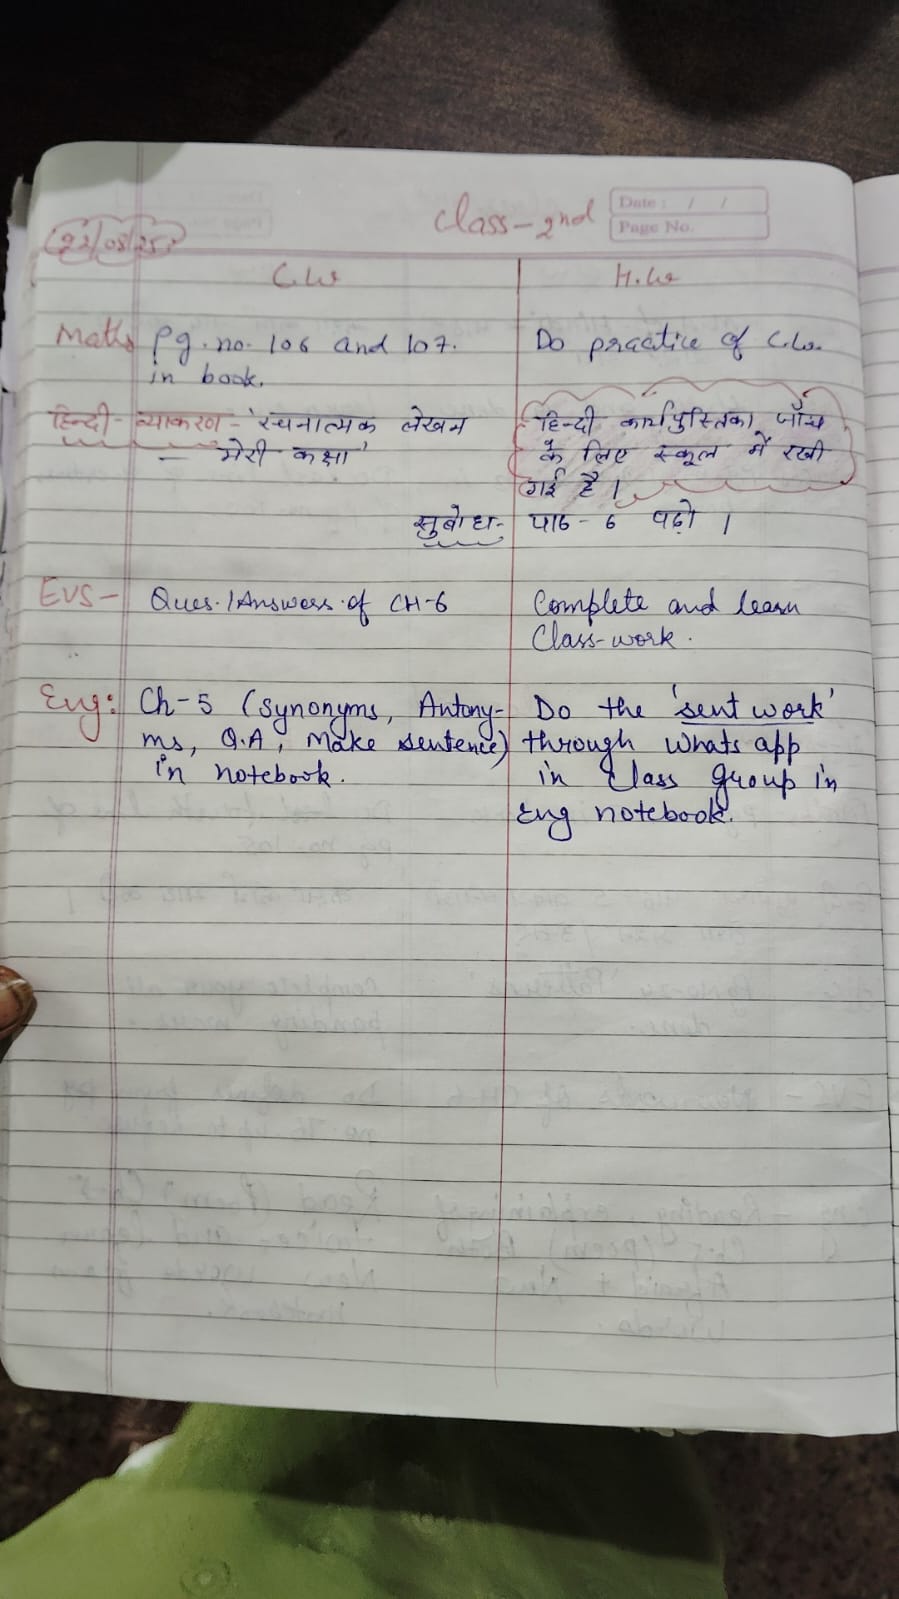 Class-2nd
Date: / /
Page No.
22/08/25
C.W
H.W
Maths Pg. no. 106 and 107.
in book.
Do practice of C.W.
हिन्दी- व्याकरण - 'रचनात्मक लेखन
- मेरी कक्षा'
हिन्दी कार्यपुस्तिका जाँच
के लिए स्कूल में रखी
गई है।
सुबोध- पाठ - 6 पढ़ो।
EVS- Ques./Answers of CH-6
Complete and learn
Class-work.
Eng: Ch-5 (Synonyms, Antony-
ms, Q.A, Make sentence)
in notebook.
Do the 'sent work'
through Whats app
in Class group in
Eng notebook.